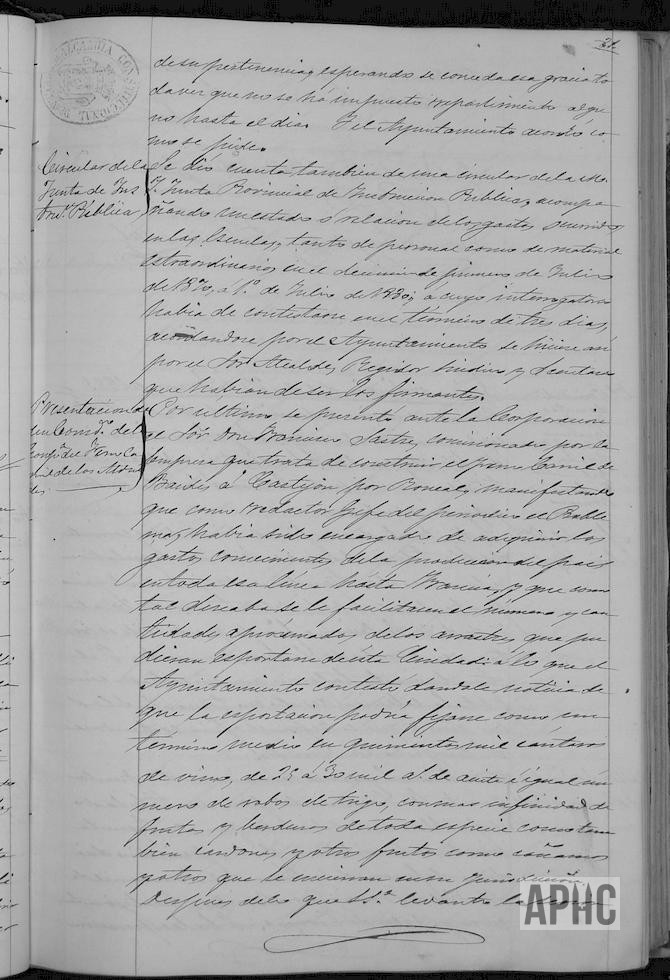 21
ALCALDIA CONSTITUCIONAL
de su pertenencia, y esperando se conceda esa gracia to
da vez que no se há impuesto repartimiento algu
no hasta el dia. Y el Ayuntamiento acordó co
mo se pide.
Circular de la
Junta de Ins
truc.n Pública
Se dió cuenta tambien de una circular de la M.
Y. Junta Provincial de Instruccion Publica, acompa
ñando un estado ó relacion de los gastos ocurridos
en las Escuelas, tanto de personal como de material
estraordinario en el decenio de primero de Julio
de 1870, a 1º de Julio de 1880, á cuyo interrogatorio
habia de contestarse en el termino de tres dias,
acordandose por el Ayuntamiento se hiciera así
por el Sor Alcalde, Regidor Sindico y Secretario
que habian de ser los firmantes.
Presentacion de
un Comdo. del
ferro Ca
rril de los Aldui
des
Por ultimo se presentó ante la Corporacion
el Sor don Francisco Sastre, comisionado por la
empresa que trata de construir el ferro Carril de
Baides á Castejon por Roncal, manifestando
que como redactor Gefe del periodico el Proble
ma, habia sido encargado de adquirir los
datos concernientes de la produccion del pais
en toda esa linea hasta Francia, y que como
tal deseaba se le facilitase el numero y can
tidades aprosimadas de los arrastres que pu
dieran esportarse de ésta Ciudad: a lo que el
Ayuntamiento contestó dandole noticia de
que la esportacion podria fijarse como un
termino medio en quinientos mil cántaros
de vino, de 25 á 30 mil a.s de aceite é igual nú
mero de robos de trigo, con mas infinidad de
frutas y verduras de toda especie como tam
bien cardones y otros frutos como cañamos
y otros que se encierran en su jurisdiccion.
Despues de lo que S.S.a levantó la sesion
APHC